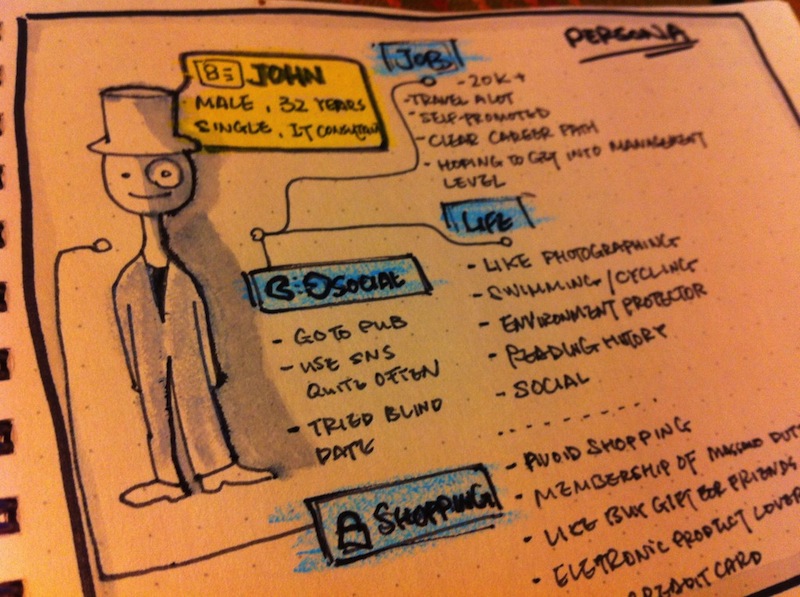 PERSONA
JOHN
MALE, 32 YEARS
SINGLE, IT CONSULTANT
JOB
- 20K+
- TRAVEL A LOT
- SELF-PROMOTED
- CLEAR CAREER PATH
- HOPING TO GET INTO MANAGEMENT
LEVEL
LIFE
- LIKE PHOTOGRAPHING
- SWIMMING/CYCLING
- ENVIRONMENT PROTECTOR
- READING HISTORY
- SOCIAL
SOCIAL
- GO TO PUB
- USE SNS
QUITE OFTEN
- TRIED BLIND
DATE
SHOPPING
- AVOID SHOPPING
- MEMBERSHIP OF MASSIMO DUT
- LIKE BUY GIFT FOR FRIENDS
- ELETRONIC PRODUCT LOVER
CREDIT CARD